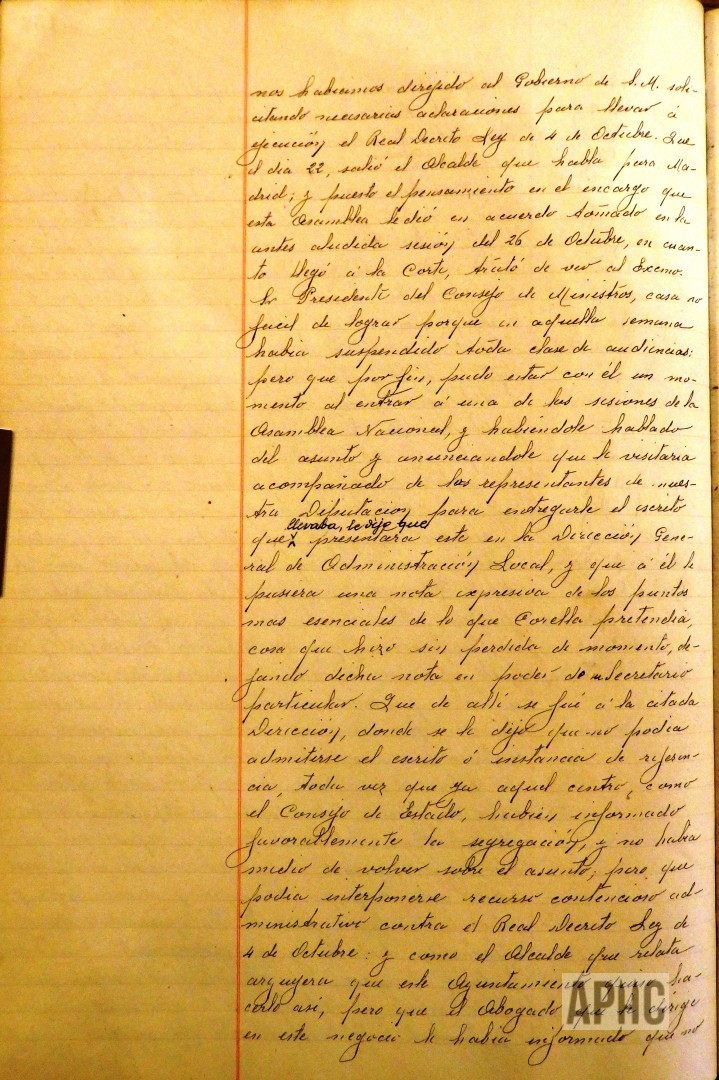 nos habíamos dirigido al Gobierno de S.M. soli-
citando necesarias aclaraciones para llevar á
ejecución el Real Decreto Ley de 4 de Octubre. Que
el dia 22, salió el Alcalde que habla para Ma-
drid; y puesto el pensamiento en el encargo que
esta Asamblea le dió en acuerdo tomado en la
antes aludida sesión del 26 de Octubre, en cuan-
to llegó á la Corte, trató de ver al Excmo.
Sr Presidente del Consejo de Ministros, cosa no
facil de lograr porque en aquella semana
habia suspendido toda clase de audiencias;
pero que por fin, pudo estar con él un mo-
mento al entrar á una de las sesiones de la
Asamblea Nacional, y habiendole hablado
del asunto y anunciandole que le visitaria
acompañado de los representantes de nues-
tra Diputacion para entregarle el escrito
llevaba, le dijo que
que presentara este en la Dirección Gene-
ral de Administración Local, y que á él le
pusiera una nota expresiva de los puntos
mas esenciales de lo que Corella pretendia,
cosa que hizo sin perdida de momento, de-
jando dicha nota en poder de su Secretario
particular. Que de allí se fué á la citada
Dirección, donde se le dijo que no podia
admitirse el escrito ó instancia de referen-
cia, toda vez que ya aquel centro, como
el Consejo de Estado, habien informado
favorablemente la segregación, y no habia
medio de volver sobre el asunto; pero que
podia interponerse recurso contencioso ad-
ministrativo contra el Real Decreto Ley de
4 de Octubre: y como el Alcalde que relata
arguyera que este Ayuntamiento quiso ha-
cerlo asi, pero que el Abogado que le dirige
en este negocio le habia informado que no
APHC